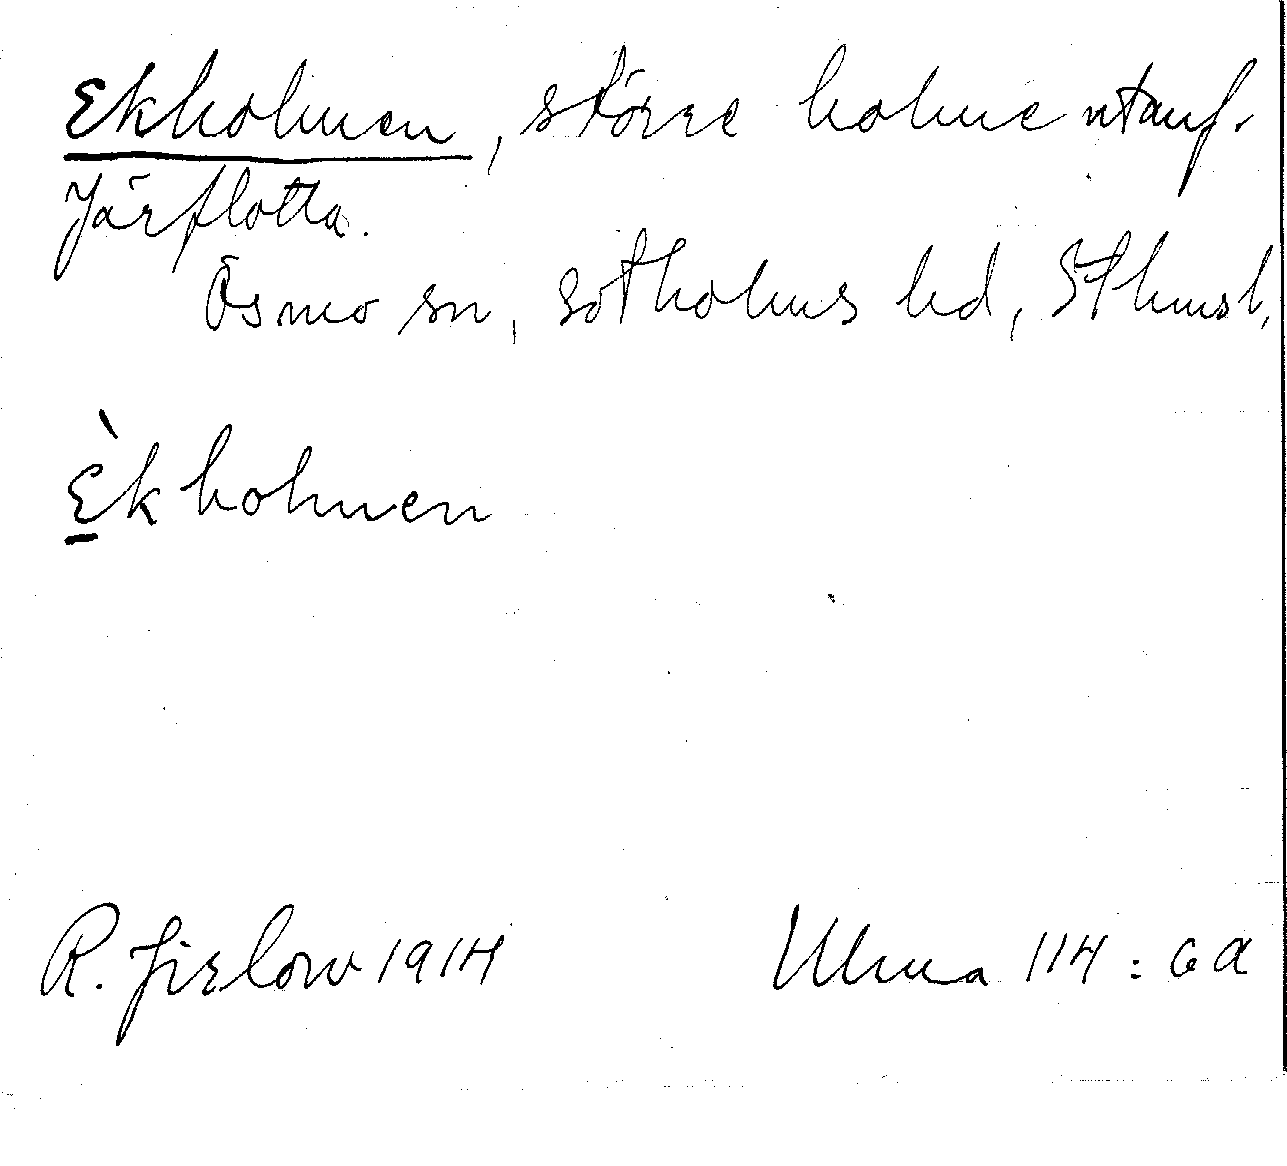 Ekholmen, större holme utanf.
Järflotta.
Ösmo sn, Sotholms hd, Sthmsl,
Èkholmen
R. Jirlow 1914
Ulma 114:6a